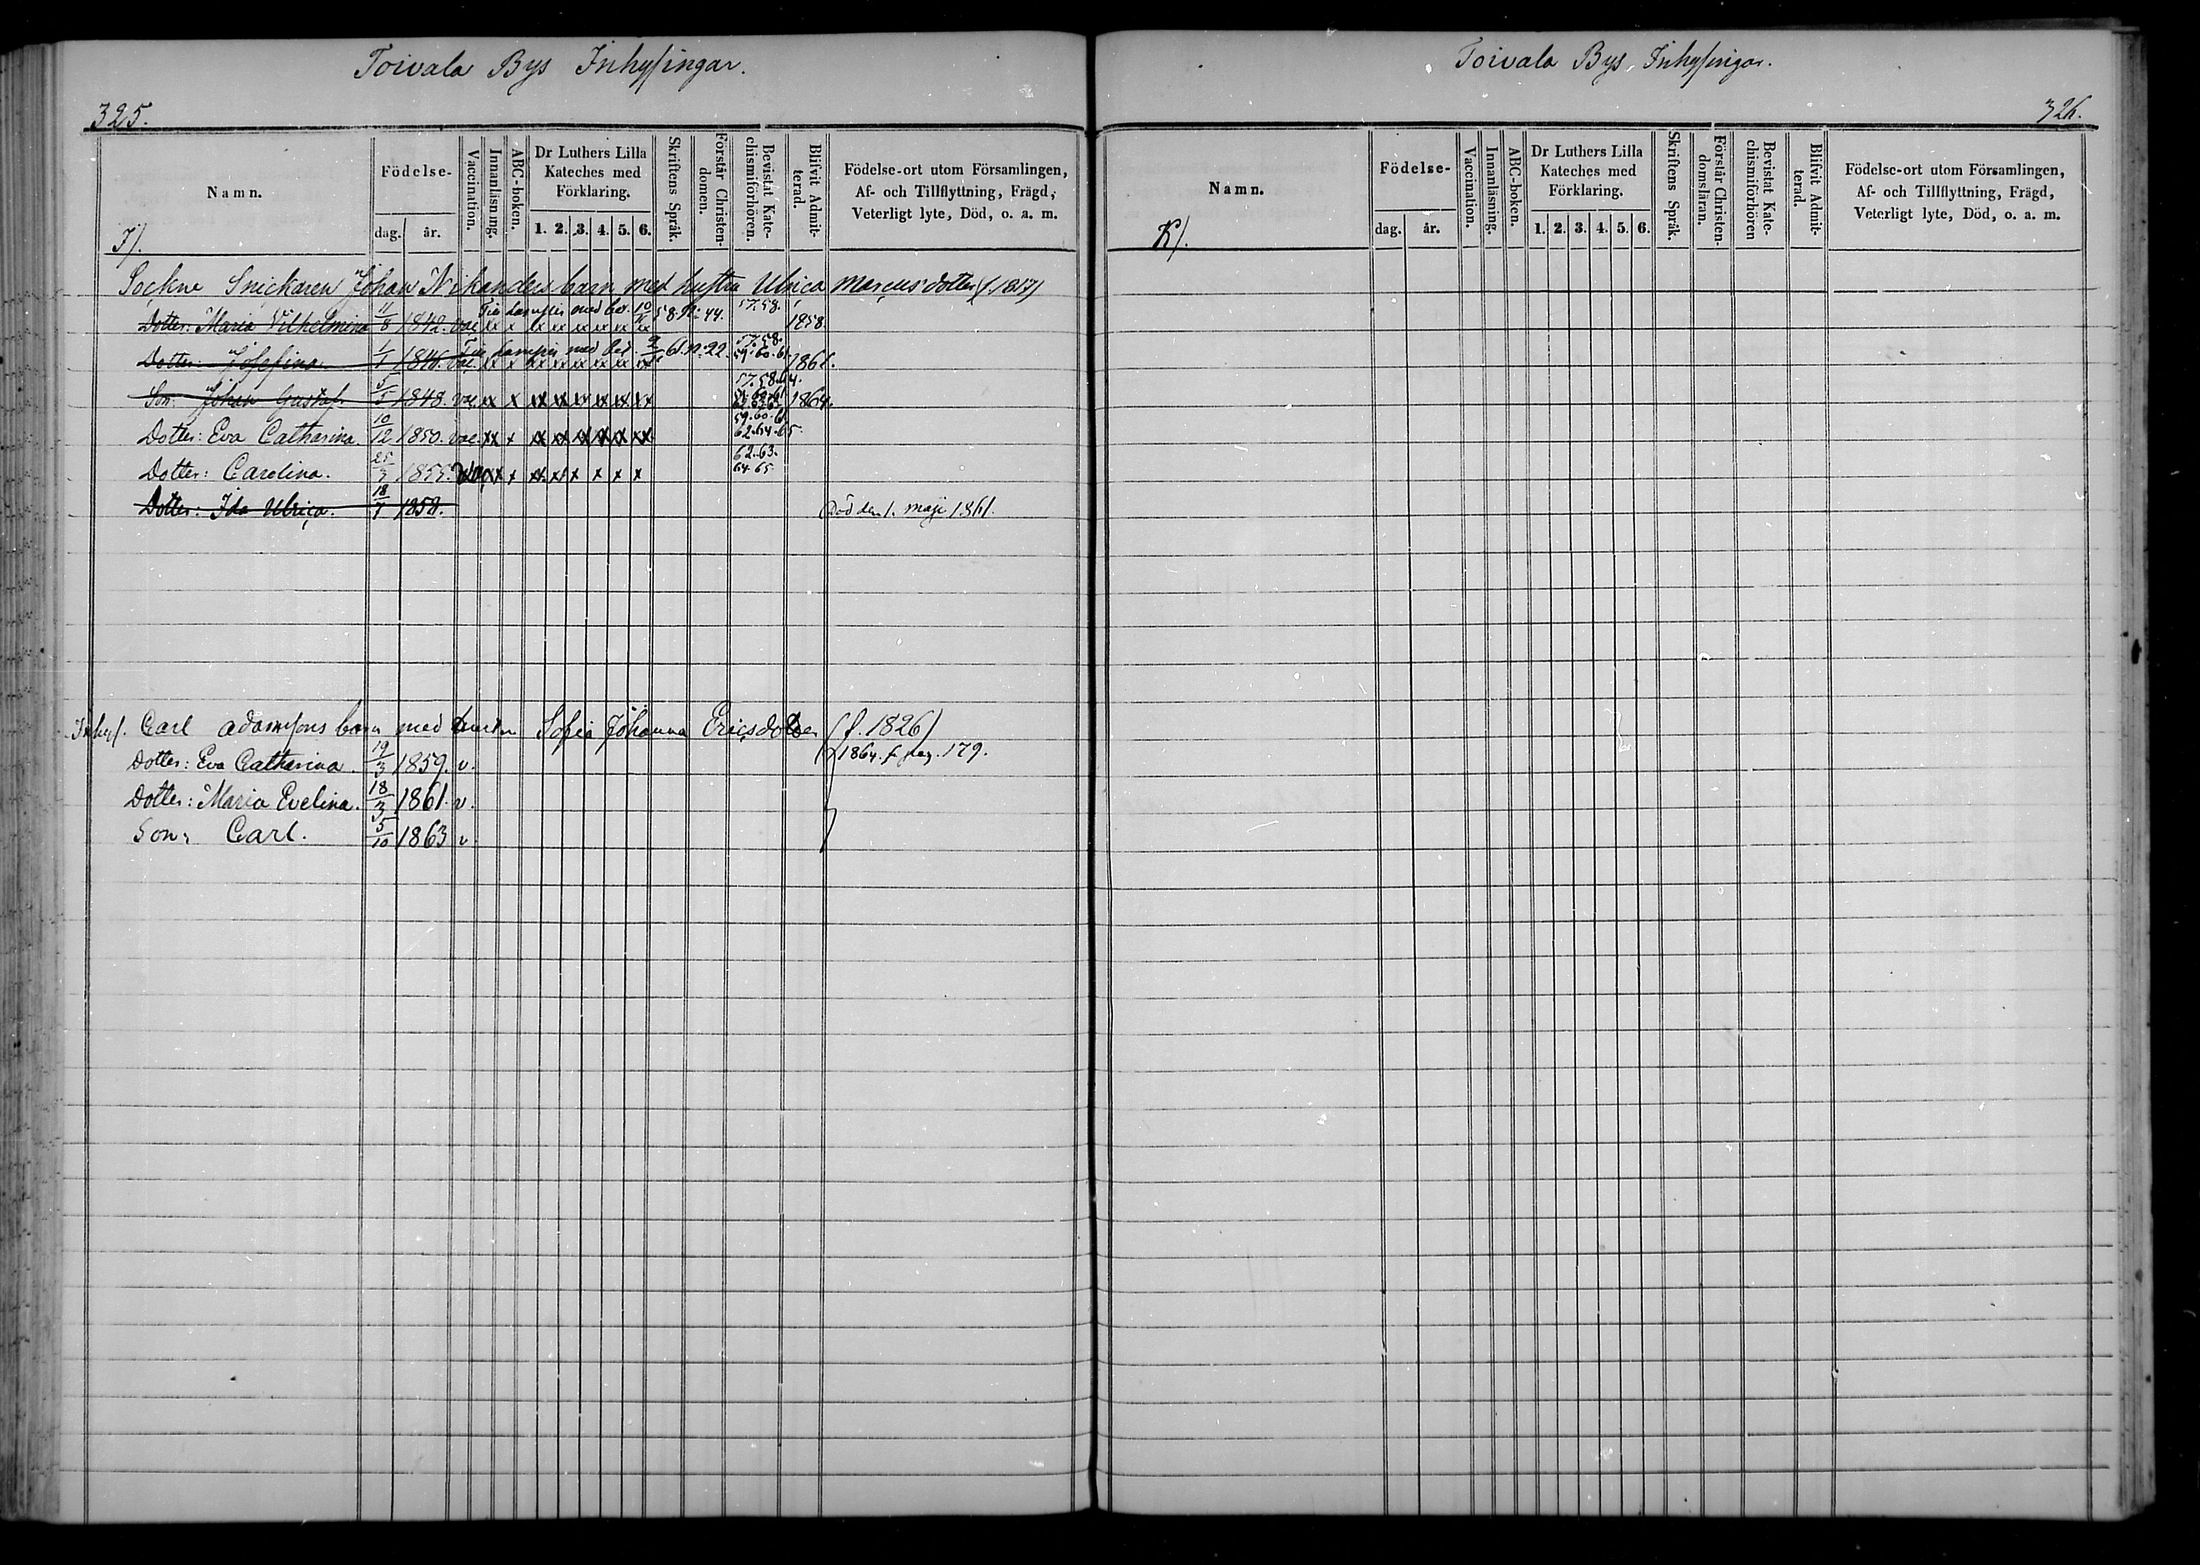 Toivala Bys Inhysingar.
325.
Namn.
Födelse-
dag. år.
Vaccination.
Innanläsning.
ABC-boken.
Dr Luthers Lilla Kateches med Förklaring.
1. 2. 3. 4. 5. 6.
Skriftens Språk.
Förstår Christendomen.
Bevistat Katechismiförhören.
Blifvit Admitterad.
Födelse-ort utom Församlingen,
Af- och Tillflyttning, Frägd,
Veterligt lyte, Död, o. a. m.
J/.
Sockne Snickaren Johan Nikanders barn med hustru Ulrica Marcusdotter (f. 1817)
Dotter: Maria Vilhelmina 11/8 1842. vac. xx x xx xx xx xx xx xx 58. No 44. 57.58. 1858.
Dotter: Josefina. 1/1 1846. vac. xx x xx xx xx xx xx xx 61. No 22. 57.58. 59.60.61. 1861.
Son: Johan Gustaf. 5/5 1848. vac. xx x xx xx xx xx xx xx 57.58. 1864.
Dotter: Eva Catharina 10/12 1850. vac. xx x xx xx xx xx xx xx 59.60.61. 62.64.65.
Dotter: Carolina. 25/3 1855. vac. xx x xx xx x x x x 62.63. 64.65
Dotter: Ida Ulrica. 18/7 1858. Död den 1. maji 1861.
Inhys. Carl Adamssons barn med hustru Sofia Johanna Ericsdotter (f. 1826)
Dotter: Eva Catharina. 19/3 1859. v. 1864. f. pag. 179.
Dotter: Maria Evelina. 18/3 1861. v.
Son: Carl. 5/10 1863 v.
Toivala Bys Inhysingar.
326.
Namn.
Födelse-
dag. år.
Vaccination.
Innanläsning.
ABC-boken.
Dr Luthers Lilla Kateches med Förklaring.
1. 2. 3. 4. 5. 6.
Skriftens Språk.
Förstår Christendomsläran.
Bevistat Katechismiförhören
Blifvit Admitterad.
Födelse-ort utom Församlingen,
Af- och Tillflyttning, Frägd,
Veterligt lyte, Död, o. a. m.
K/.